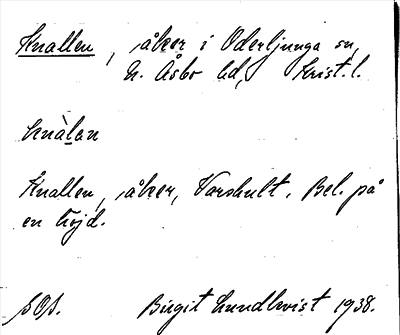 Knallen, åker i Oderljunga sn,
N. Åsbo hd, Krist. l.
knàlan
Knallen, åker, Varshult. Bel. på
en höjd.
SOS. Birgit Lundkvist 1938.